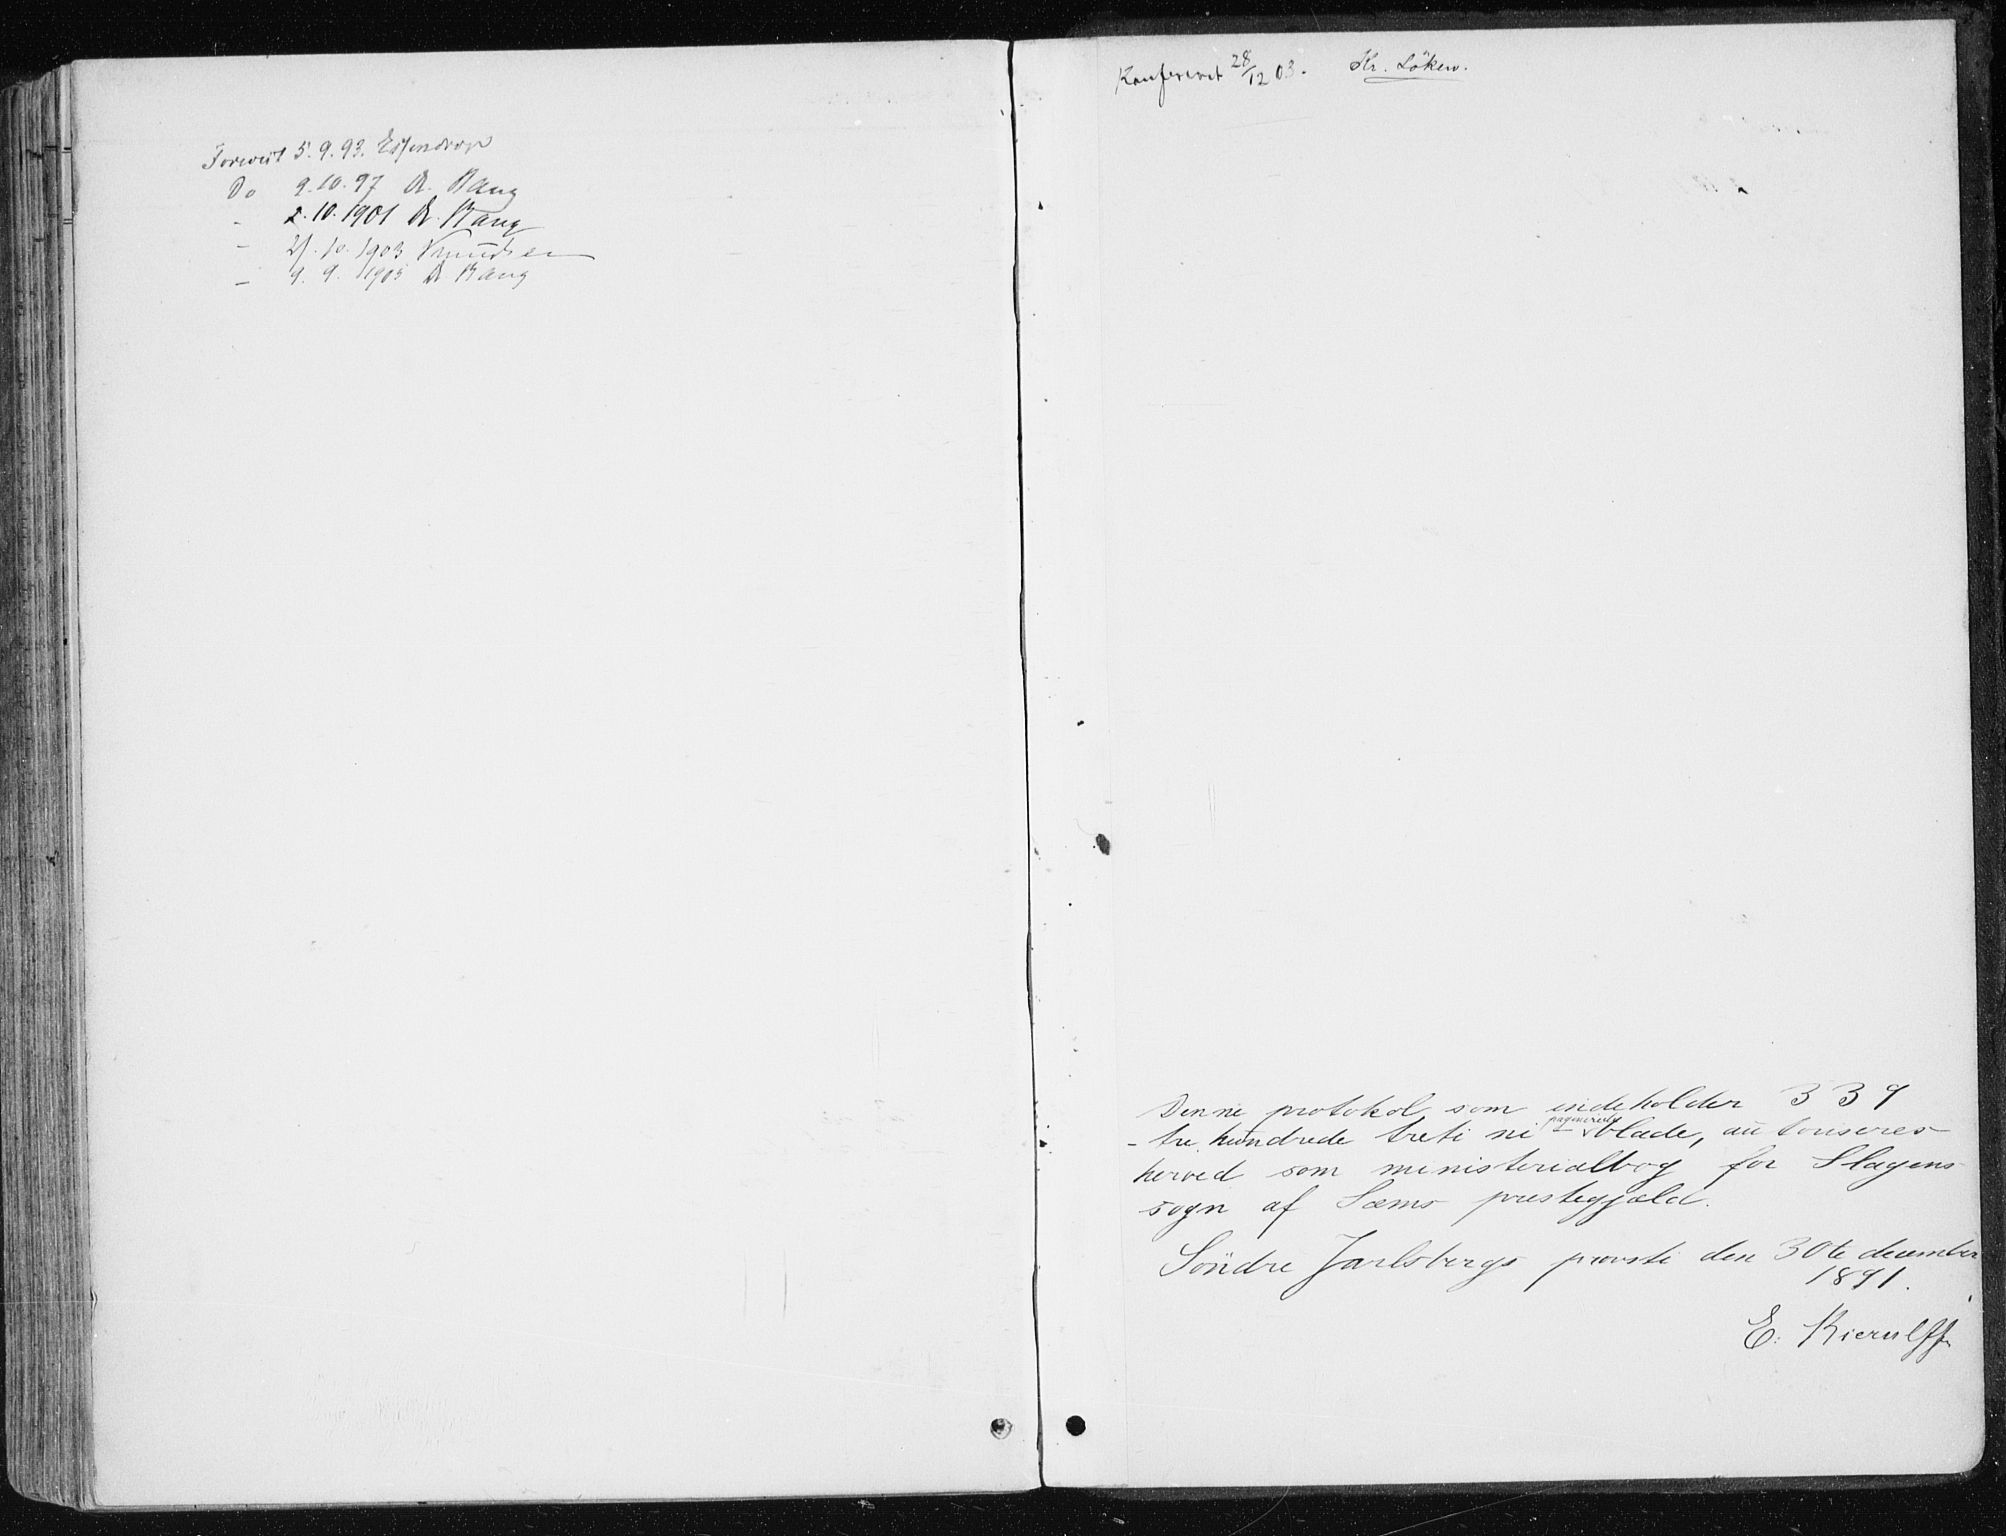 Forevist 5.9.93. Essendrop
Do 9.10.97 A. Bang
- 2.10.1901 A. Bang
- 21.10.1903 Knudsen
- 9.9.1905 A. Bang
Konfereret 28/12 03. Kr. Löken.
Denne protokol, som indeholder 339
- tre hundrede treti ni - paginerede blade, autoriseres
herved som ministerialbog for Slagens
sogn af Sæms præstegjæld.
Söndre Jarlsbergs provsti den 30te december
1891.
E. Kierulff